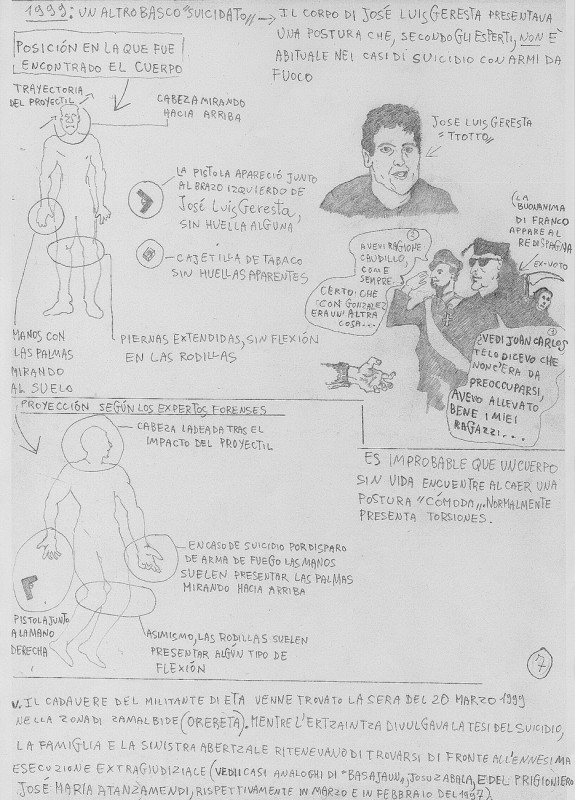 1999: UN ALTRO BASCO "SUICIDATO" → IL CORPO DI JOSÉ LUIS GERESTA PRESENTAVA
UNA POSTURA CHE, SECONDO GLI ESPERTI, NON È
ABITUALE NEI CASI DI SUICIDIO CON ARMI DA
FUOCO
POSICIÓN EN LA QUE FUE
ENCONTRADO EL CUERPO
TRAYECTORIA
DEL PROYECTIL
CABEZA MIRANDO
HACIA ARRIBA
LA PISTOLA APARECIÓ JUNTO
AL BRAZO IZQUIERDO DE
José Luis Geresta,
SIN HUELLA ALGUNA
CAJETILLA DE TABACO
SIN HUELLAS APARENTES
MANOS CON
LAS PALMAS
MIRANDO
AL SUELO
PIERNAS EXTENDIDAS, SIN FLEXIÓN
EN LAS RODILLAS
JOSE LUIS GERESTA
"TTOTTO"
(LA
BUONANIMA
DI FRANCO
APPARE AL
RE DI SPAGNA
EX-VOTO
2
AVEVI RAGIONE
CAUDILLO,
COME
SEMPRE...
CERTO: CHE
CON GONZALEZ
ERA UN' ALTRA
COSA...
1
VEDI JUAN CARLOS
TE LO DICEVO CHE
NON C'ERA DA
PREOCCUPARSI,
AVEVO ALLEVATO
BENE I MIEI
RAGAZZI...
PROYECCIÓN SEGÚN LOS EXPERTOS FORENSES
CABEZA LADEADA TRAS EL
IMPACTO DEL PROYECTIL
ES IMPROBABLE QUE UN CUERPO
SIN VIDA ENCUENTRE AL CAER UNA
POSTURA "CÓMODA". NORMALMENTE
PRESENTA TORSIONES.
EN CASO DE SUICIDIO POR DISPARO
DE ARMA DE FUEGO LAS MANOS
SUELEN PRESENTAR LAS PALMAS
MIRANDO HACIA ARRIBA
PISTOLA JUNTO
A LA MANO
DERECHA
ASIMISMO, LAS RODILLAS SUELEN
PRESENTAR ALGÚN TIPO DE
FLEXIÓN
7
V. IL CADAVERE DEL MILITANTE DI ETA VENNE TROVATO LA SERA DEL 20 MARZO 1999
NELLA ZONA DI ZAMALBIDE (ORERETA). MENTRE L'ERTZAINTZA DIVULGAVA LA TESI DEL SUICIDIO,
LA FAMIGLIA E LA SINISTRA ABERTZALE RITENEVANO DI TROVARSI DI FRONTE ALL'ENNESIMA
ESECUZIONE EXTRAGIUDIZIALE (VEDI I CASI ANALOGHI DI "BASAJAUN", JOSU ZABALA, E DEL PRIGIONIERO
JOSÉ MARIA ATANZAMENDI, RISPETTIVAMENTE IN MARZO E IN FEBBRAIO DEL 1997).